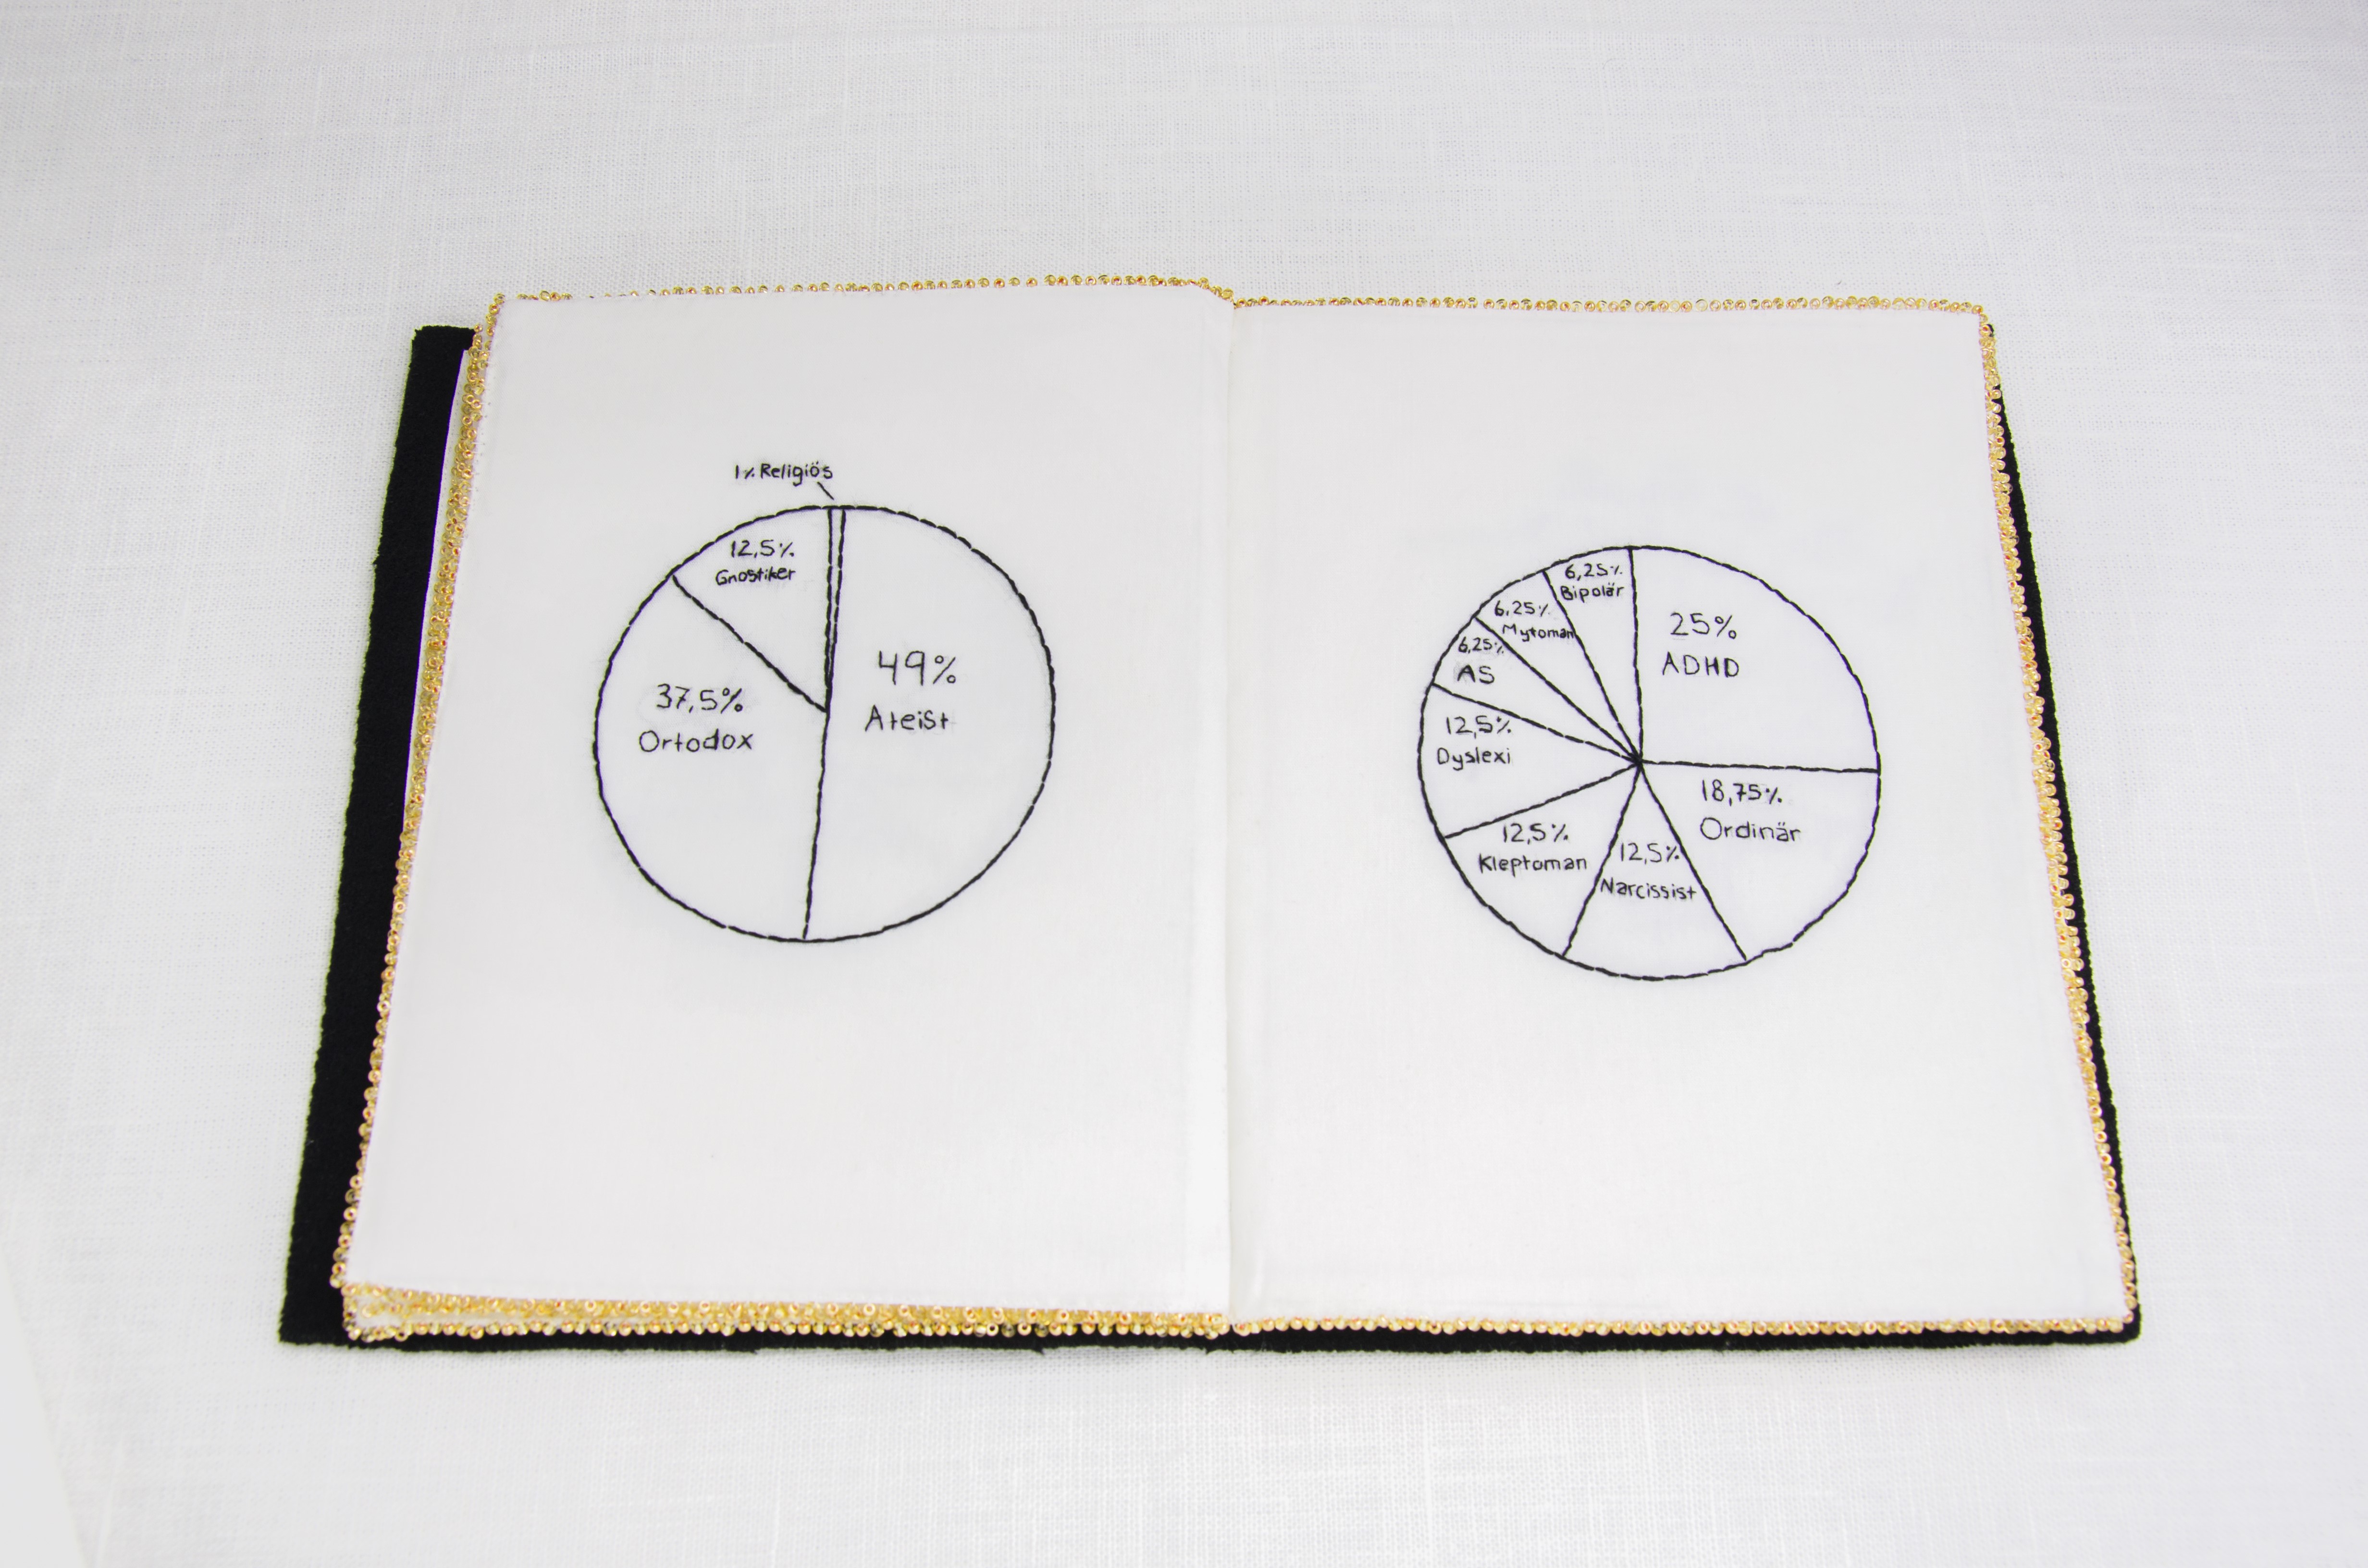 1% Religiös
12,5%
Gnostiker
49%
Ateist
37,5%
Ortodox
6,25%
Bipolär
25%
ADHD
6,25%
Mytoman
6,25%
AS
12,5%
Dyslexi
18,75%
Ordinär
12,5%
Kleptoman
12,5%
Narcissist